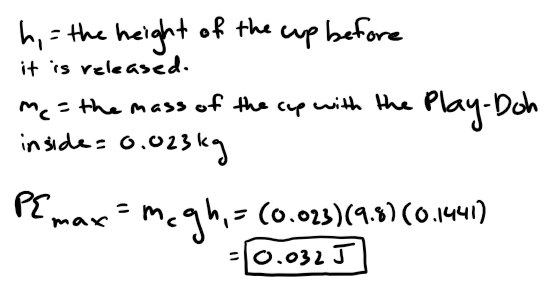 h₁ = the height of the cup before
it is released.
m_c = the mass of the cup with the Play-Doh
inside = 0.023 kg
PE_max = m_c g h₁ = (0.023)(9.8)(0.1441)
= 0.032 J